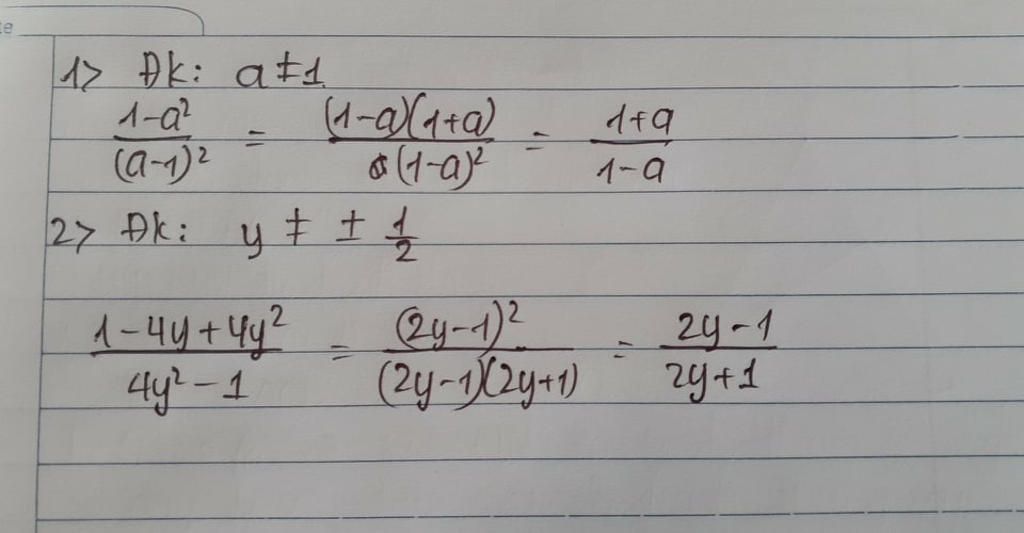 te
1> ĐK: a ≠ 1
(1-a²)/(a-1)² = (1-a)(1+a)/(1-a)² = (1+a)/(1-a)
2> ĐK: y ≠ ± 1/2
(1-4y+4y²)/(4y²-1) = (2y-1)²/(2y-1)(2y+1) = (2y-1)/(2y+1)